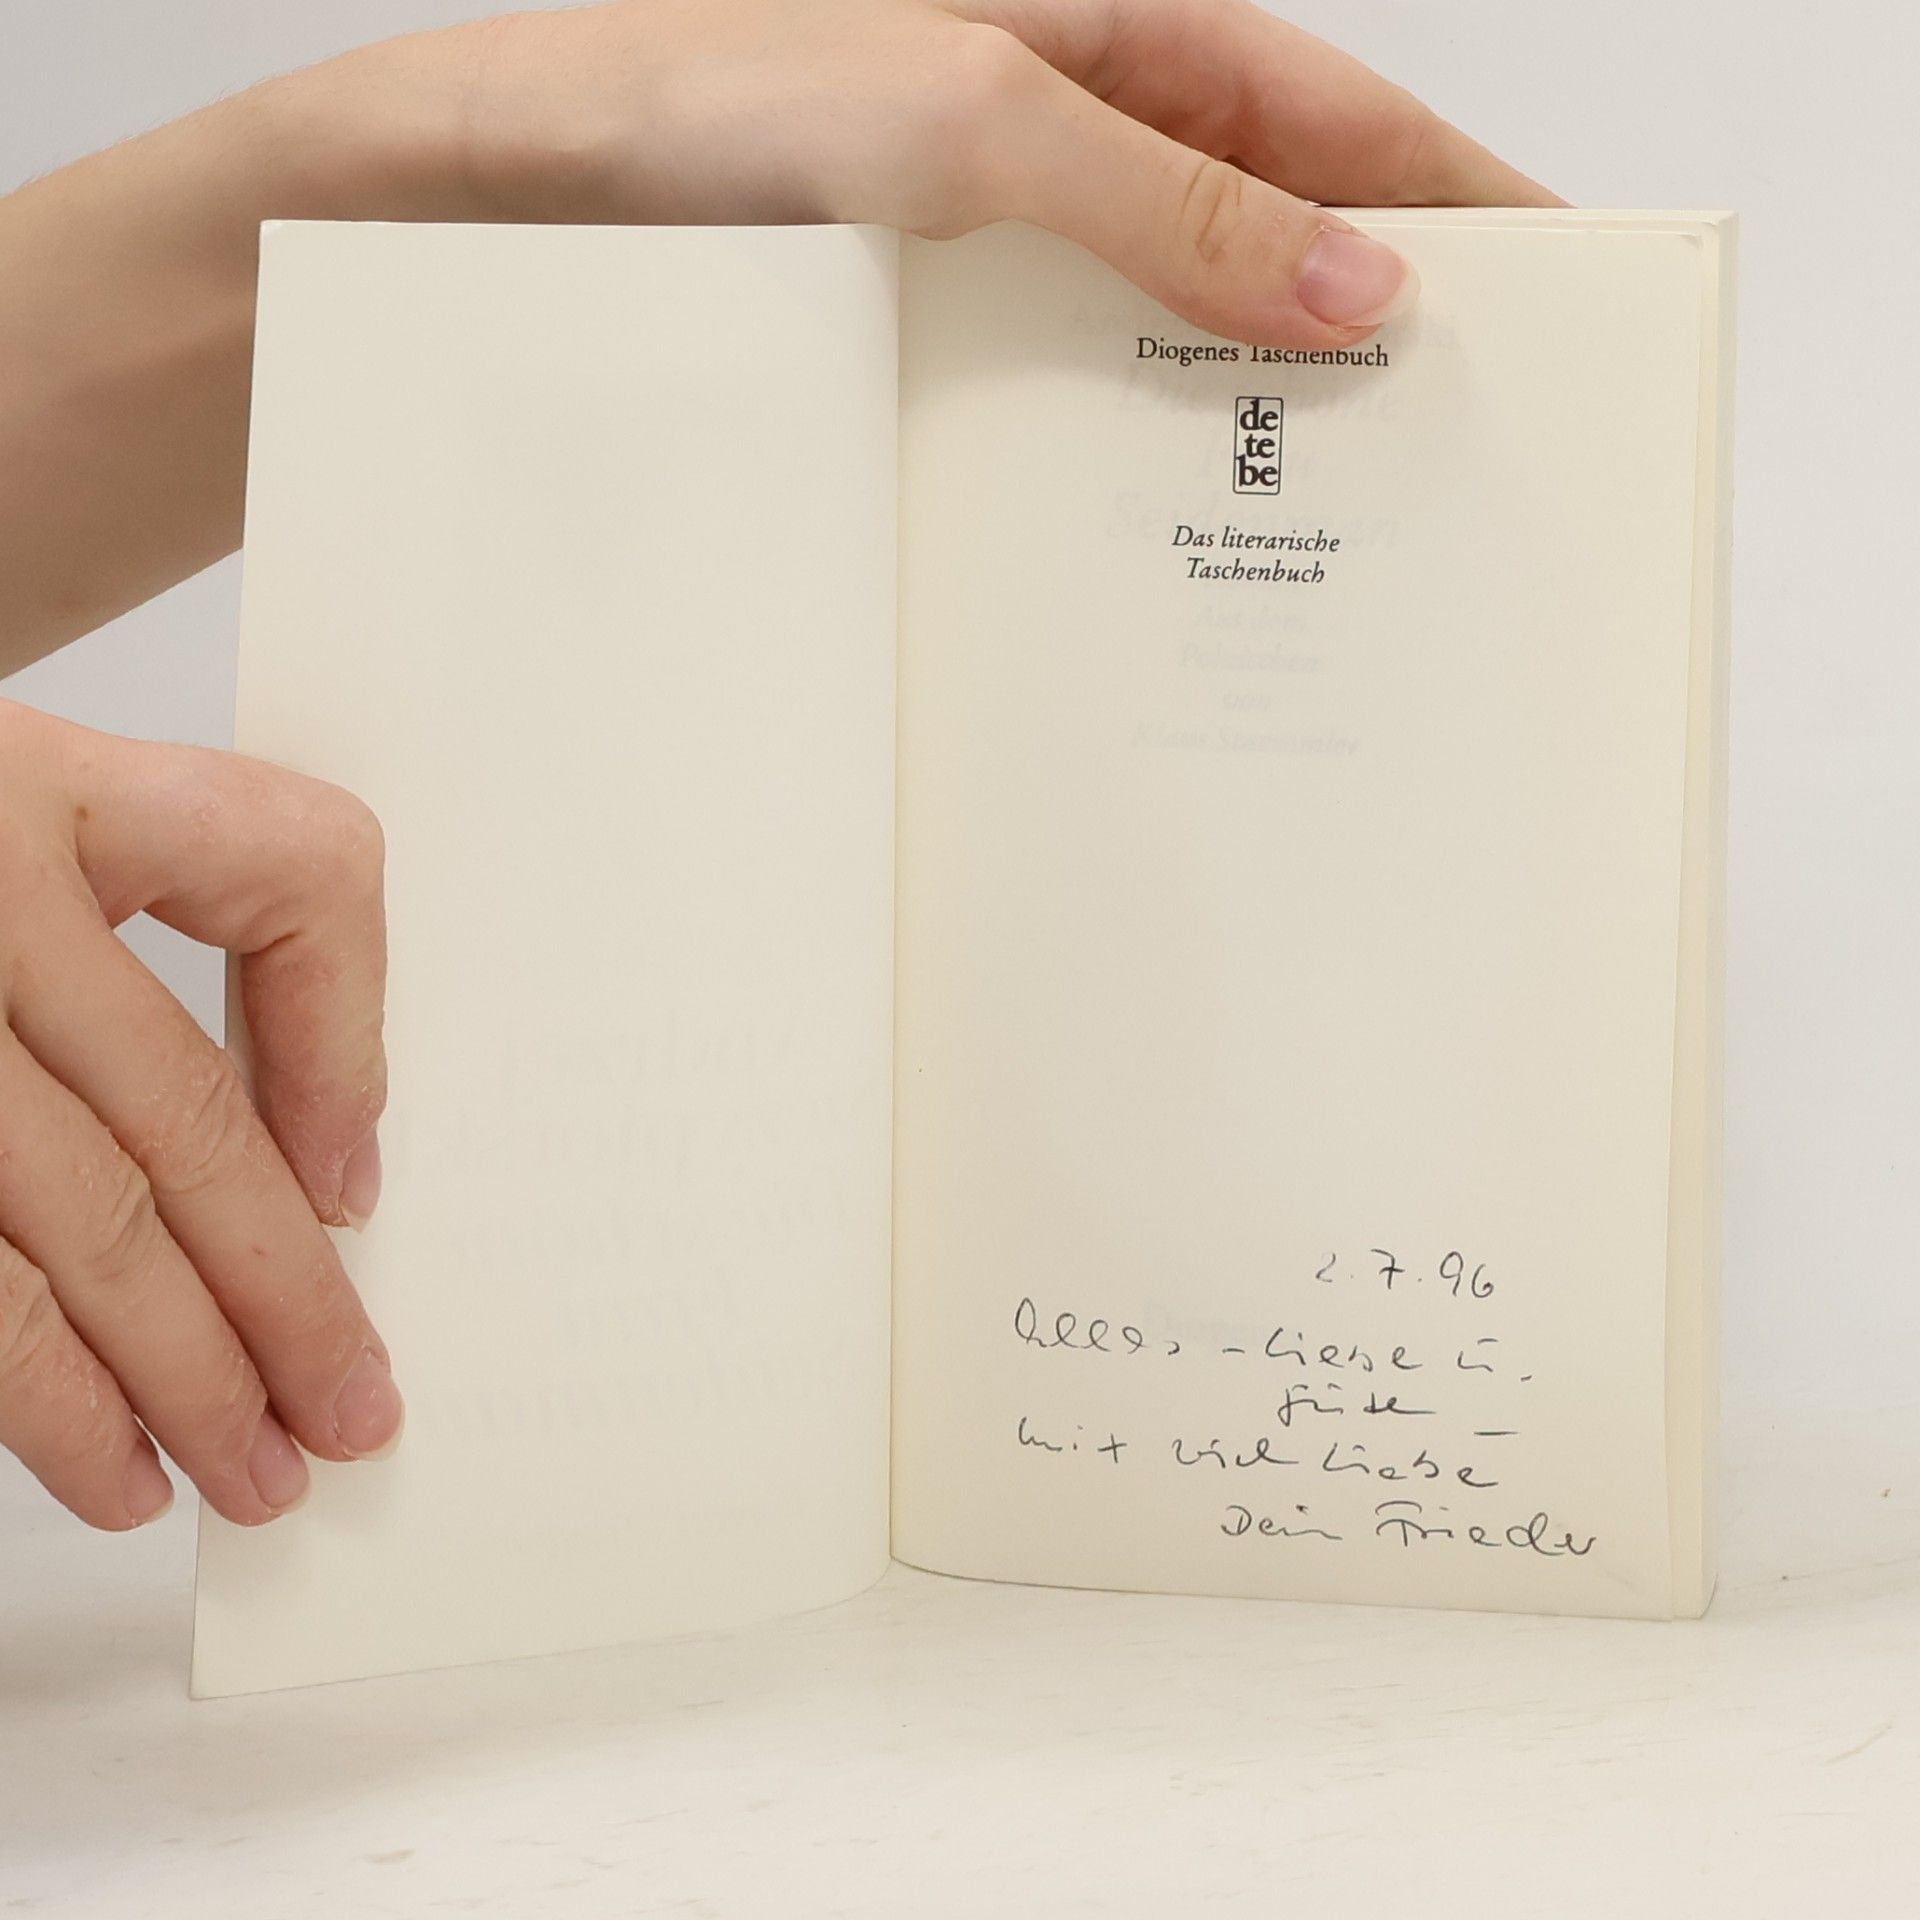 Diogenes Taschenbuch
de
te
be
Das literarische
Taschenbuch
2.7.96
Alles - Liebe u.
Güte –
mit viel Liebe
Dein Frieder